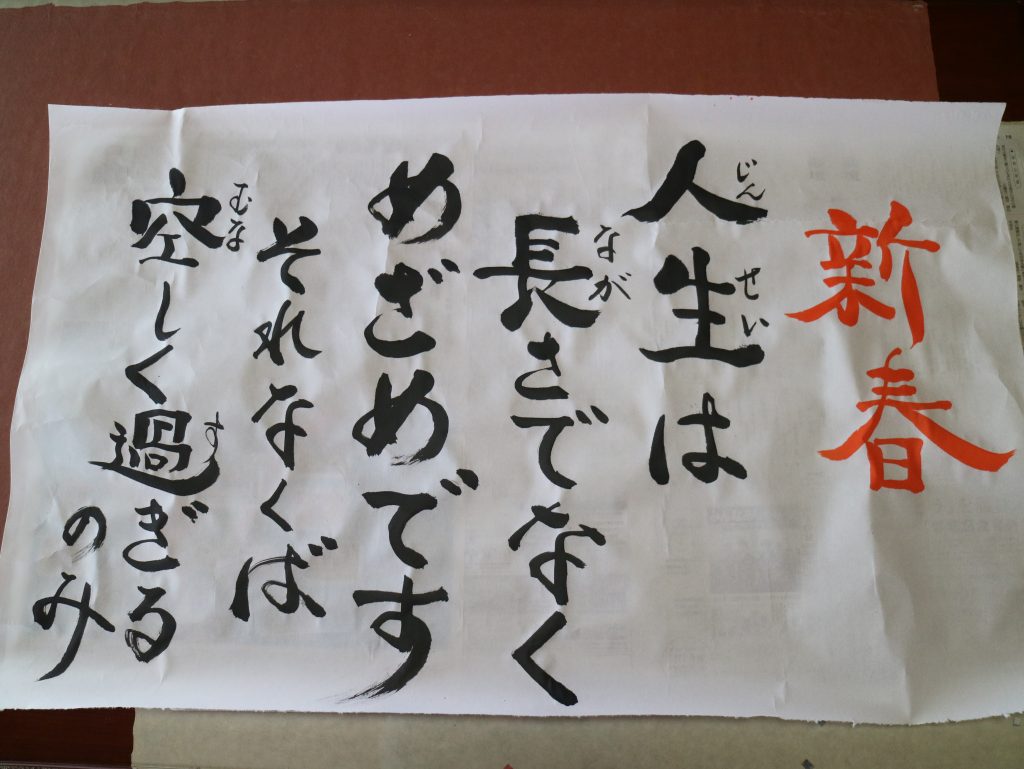 新春
人生は
じんせい
長さでなく
なが
めざめです
それなくば
空しく過ぎる
むな
す
のみ